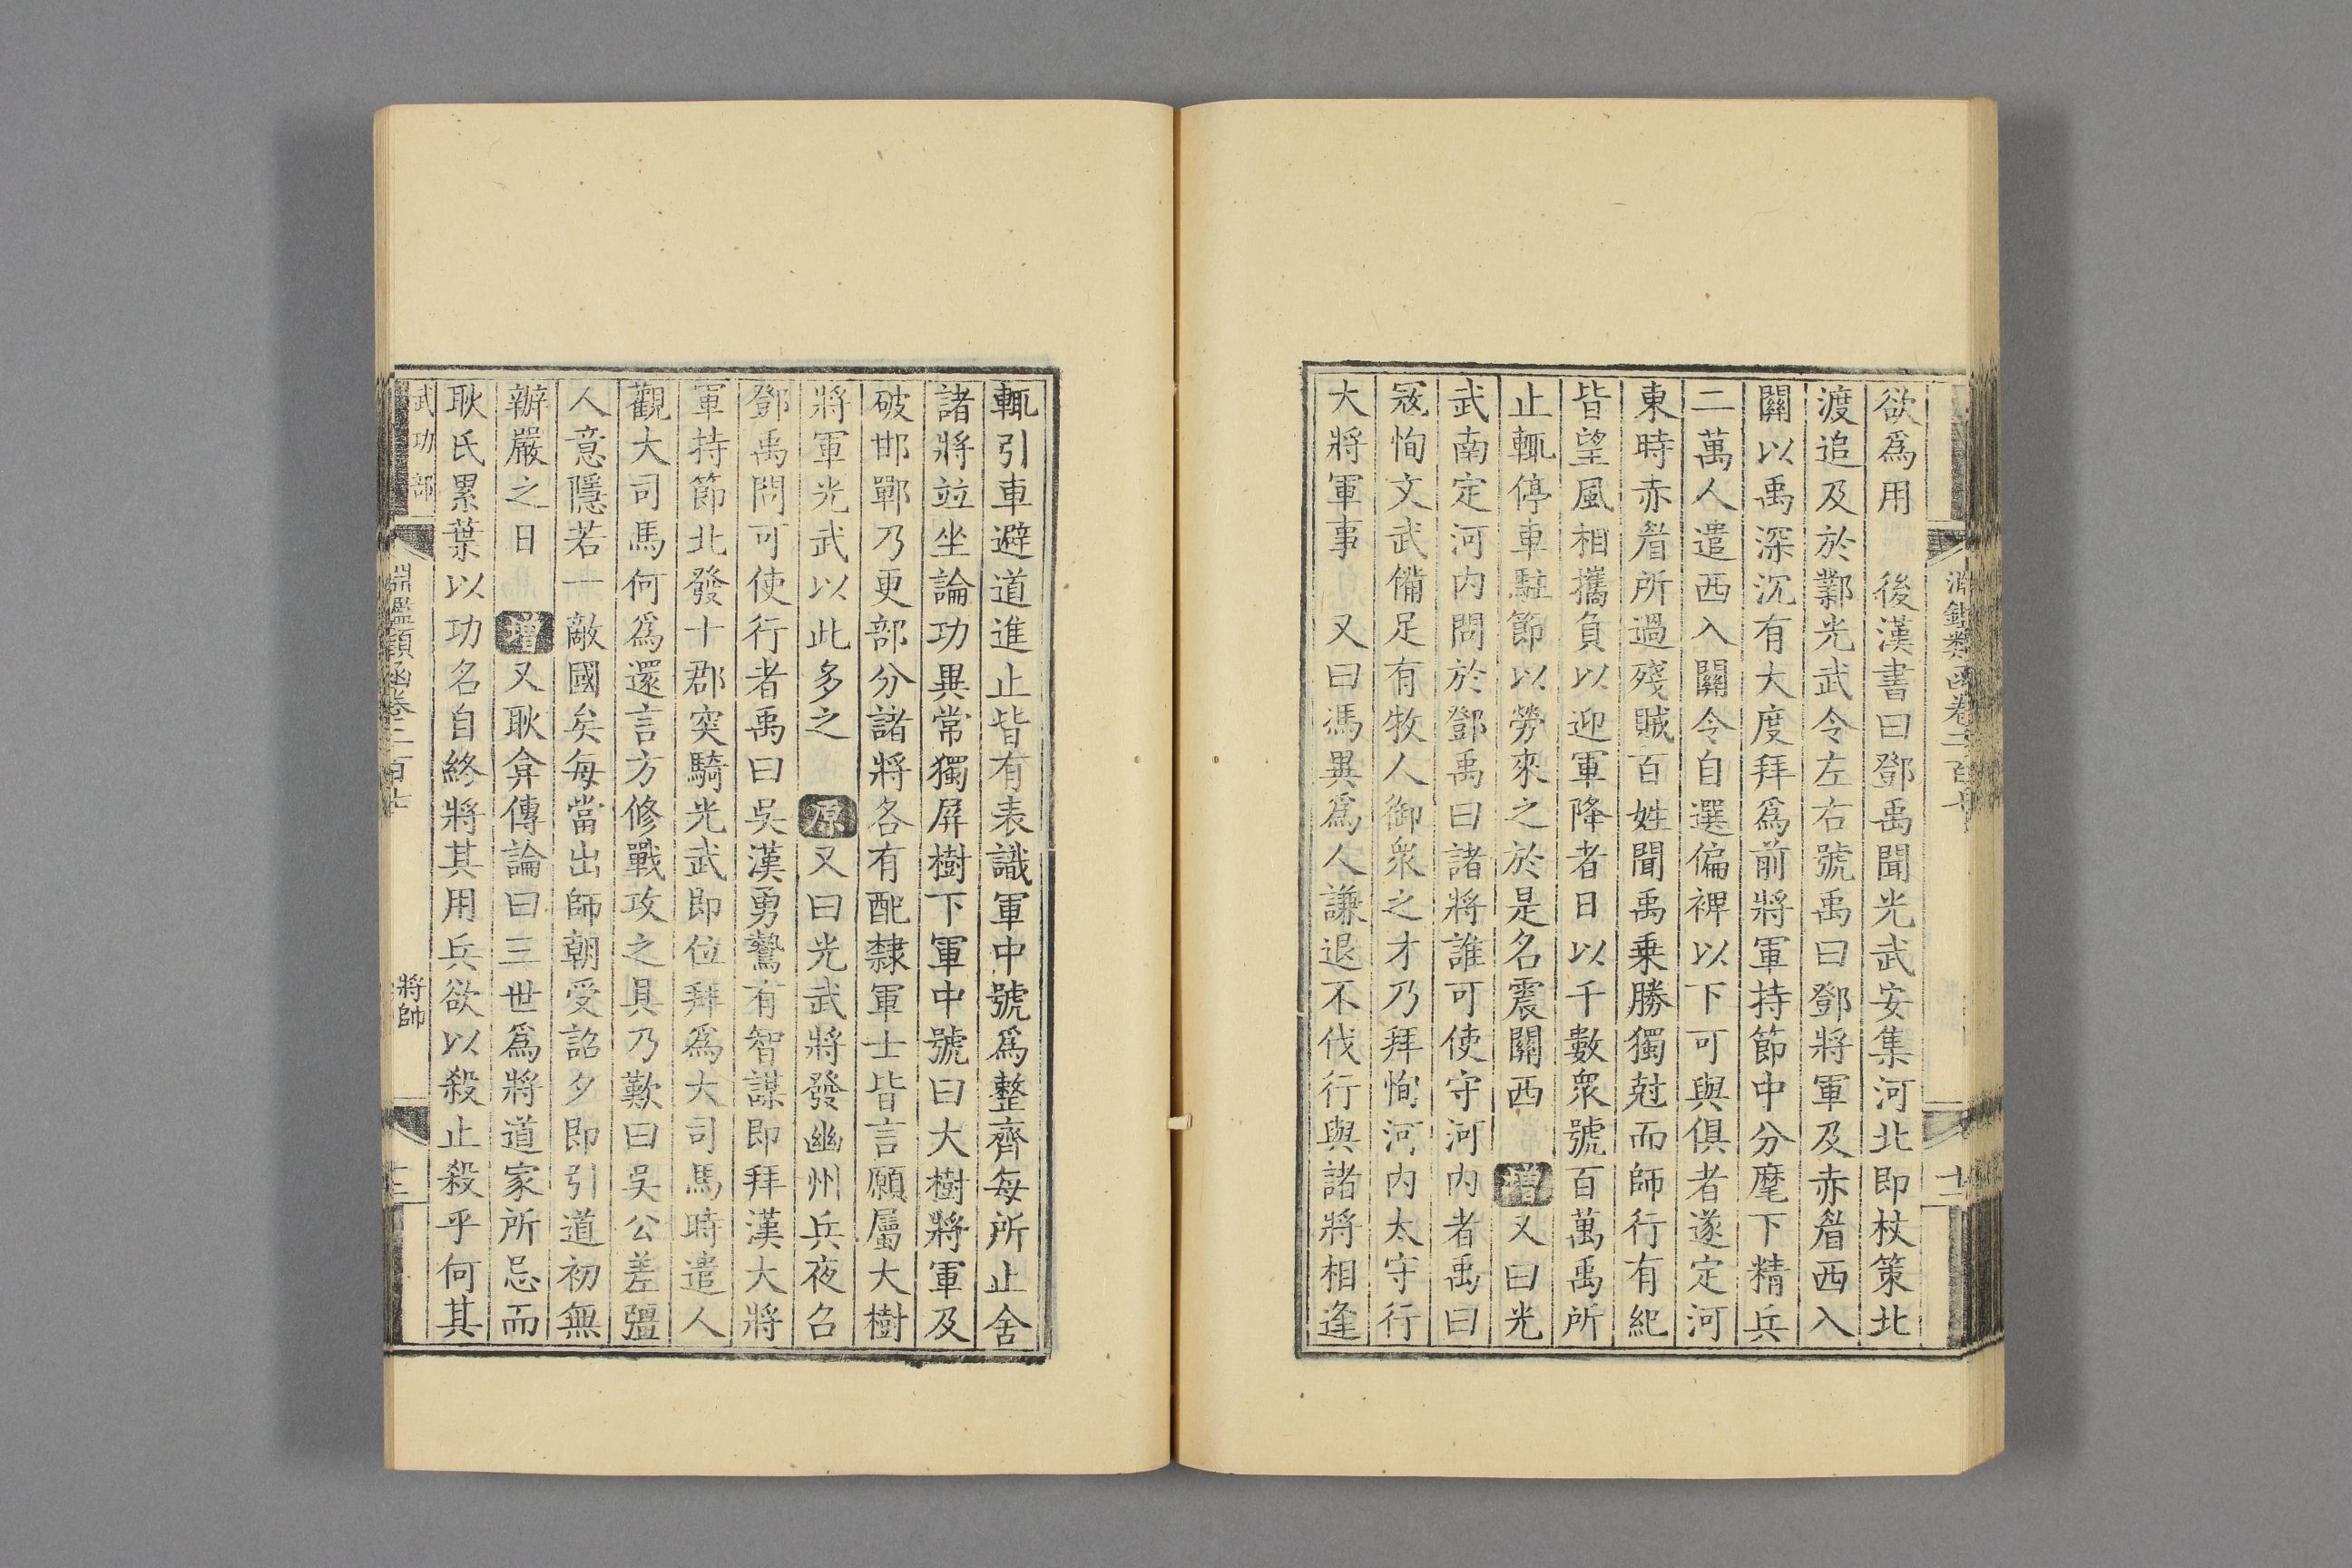 淵鑑類函卷二百七
十二
欲爲用　後漢書曰鄧禹聞光武安集河北即杖策北
渡追及於鄴光武令左右號禹曰鄧將軍及赤眉西入
關以禹深沉有大度拜爲前將軍持節中分麾下精兵
二萬人遣西入關令自選偏裨以下可與俱者遂定河
東時赤眉所過殘賊百姓聞禹乗勝獨尅而師行有紀
皆望風相攜負以迎軍降者日以千數衆號百萬禹所
止輒停車駐節以勞來之於是名震關西　增又曰光
武南定河内問於鄧禹曰諸將誰可使守河内者禹曰
寇恂文武備足有牧人御衆之才乃拜恂河内太守行
大將軍事　又曰馮異爲人謙退不伐行與諸將相逢
輒引車避道進止皆有表識軍中號爲整齊每所止舍
諸將竝坐論功異常獨屏樹下軍中號曰大樹將軍及
破邯鄲乃更部分諸將各有配隸軍士皆言願屬大樹
將軍光武以此多之　原又曰光武將發幽州兵夜召
鄧禹問可使行者禹曰吳漢勇鷙有智謀即拜漢大將
軍持節北發十郡突騎光武即位拜爲大司馬時遣人
觀大司馬何爲還言方修戰攻之具乃歎曰吳公差彊
人意隱若一敵國矣每當出師朝受詔夕即引道初無
辦嚴之日　增又耿弇傳論曰三世爲將道家所忌而
耿氏累葉以功名自終將其用兵欲以殺止殺乎何其
武功部
淵鑑類函卷二百七
將帥